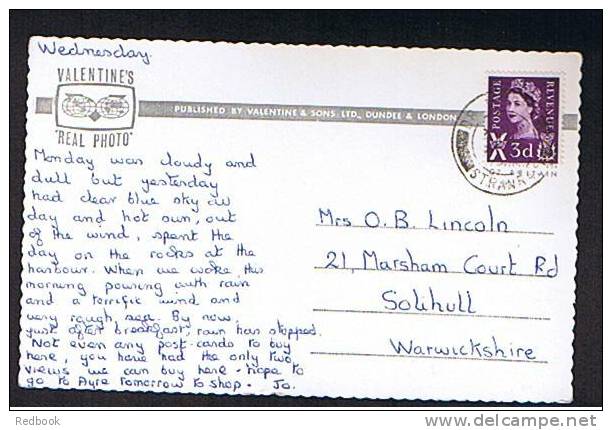 Wednesday.
VALENTINE'S
"REAL PHOTO"
PUBLISHED BY VALENTINE & SONS. LTD., DUNDEE & LONDON
POSTAGE
REVENUE
3d
STRANR
Monday was cloudy and
dull but yesterday
had clear blue sky all
day and hot sun, out
of the wind, spent the
day on the rocks at the
harbour. When we woke this
morning pouring with rain
and a terrific wind and
very rough, sea. By now,
just after breakfast, rain has stopped.
Not even any post-cards to buy
here, you have had the only two
views we can buy here - hope to
go to Ayre tomorrow to shop - Jo.
Mrs O. B. Lincoln
21, Marsham Court Rd
Solihull
Warwickshire
Redbook
delcampe.net